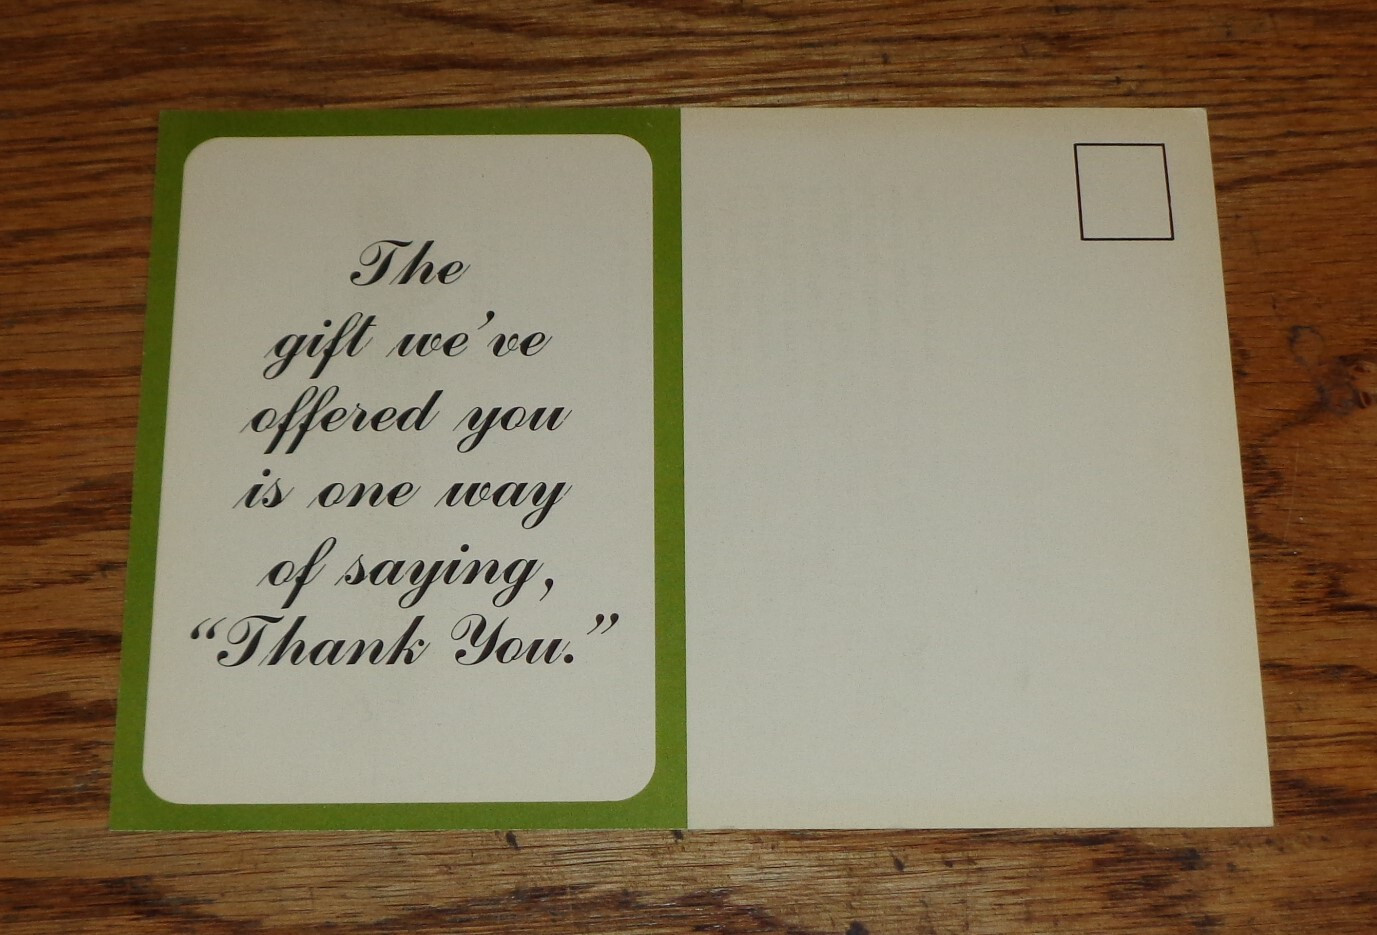 The
gift we've
offered you
is one way
of saying,
“Thank You.”